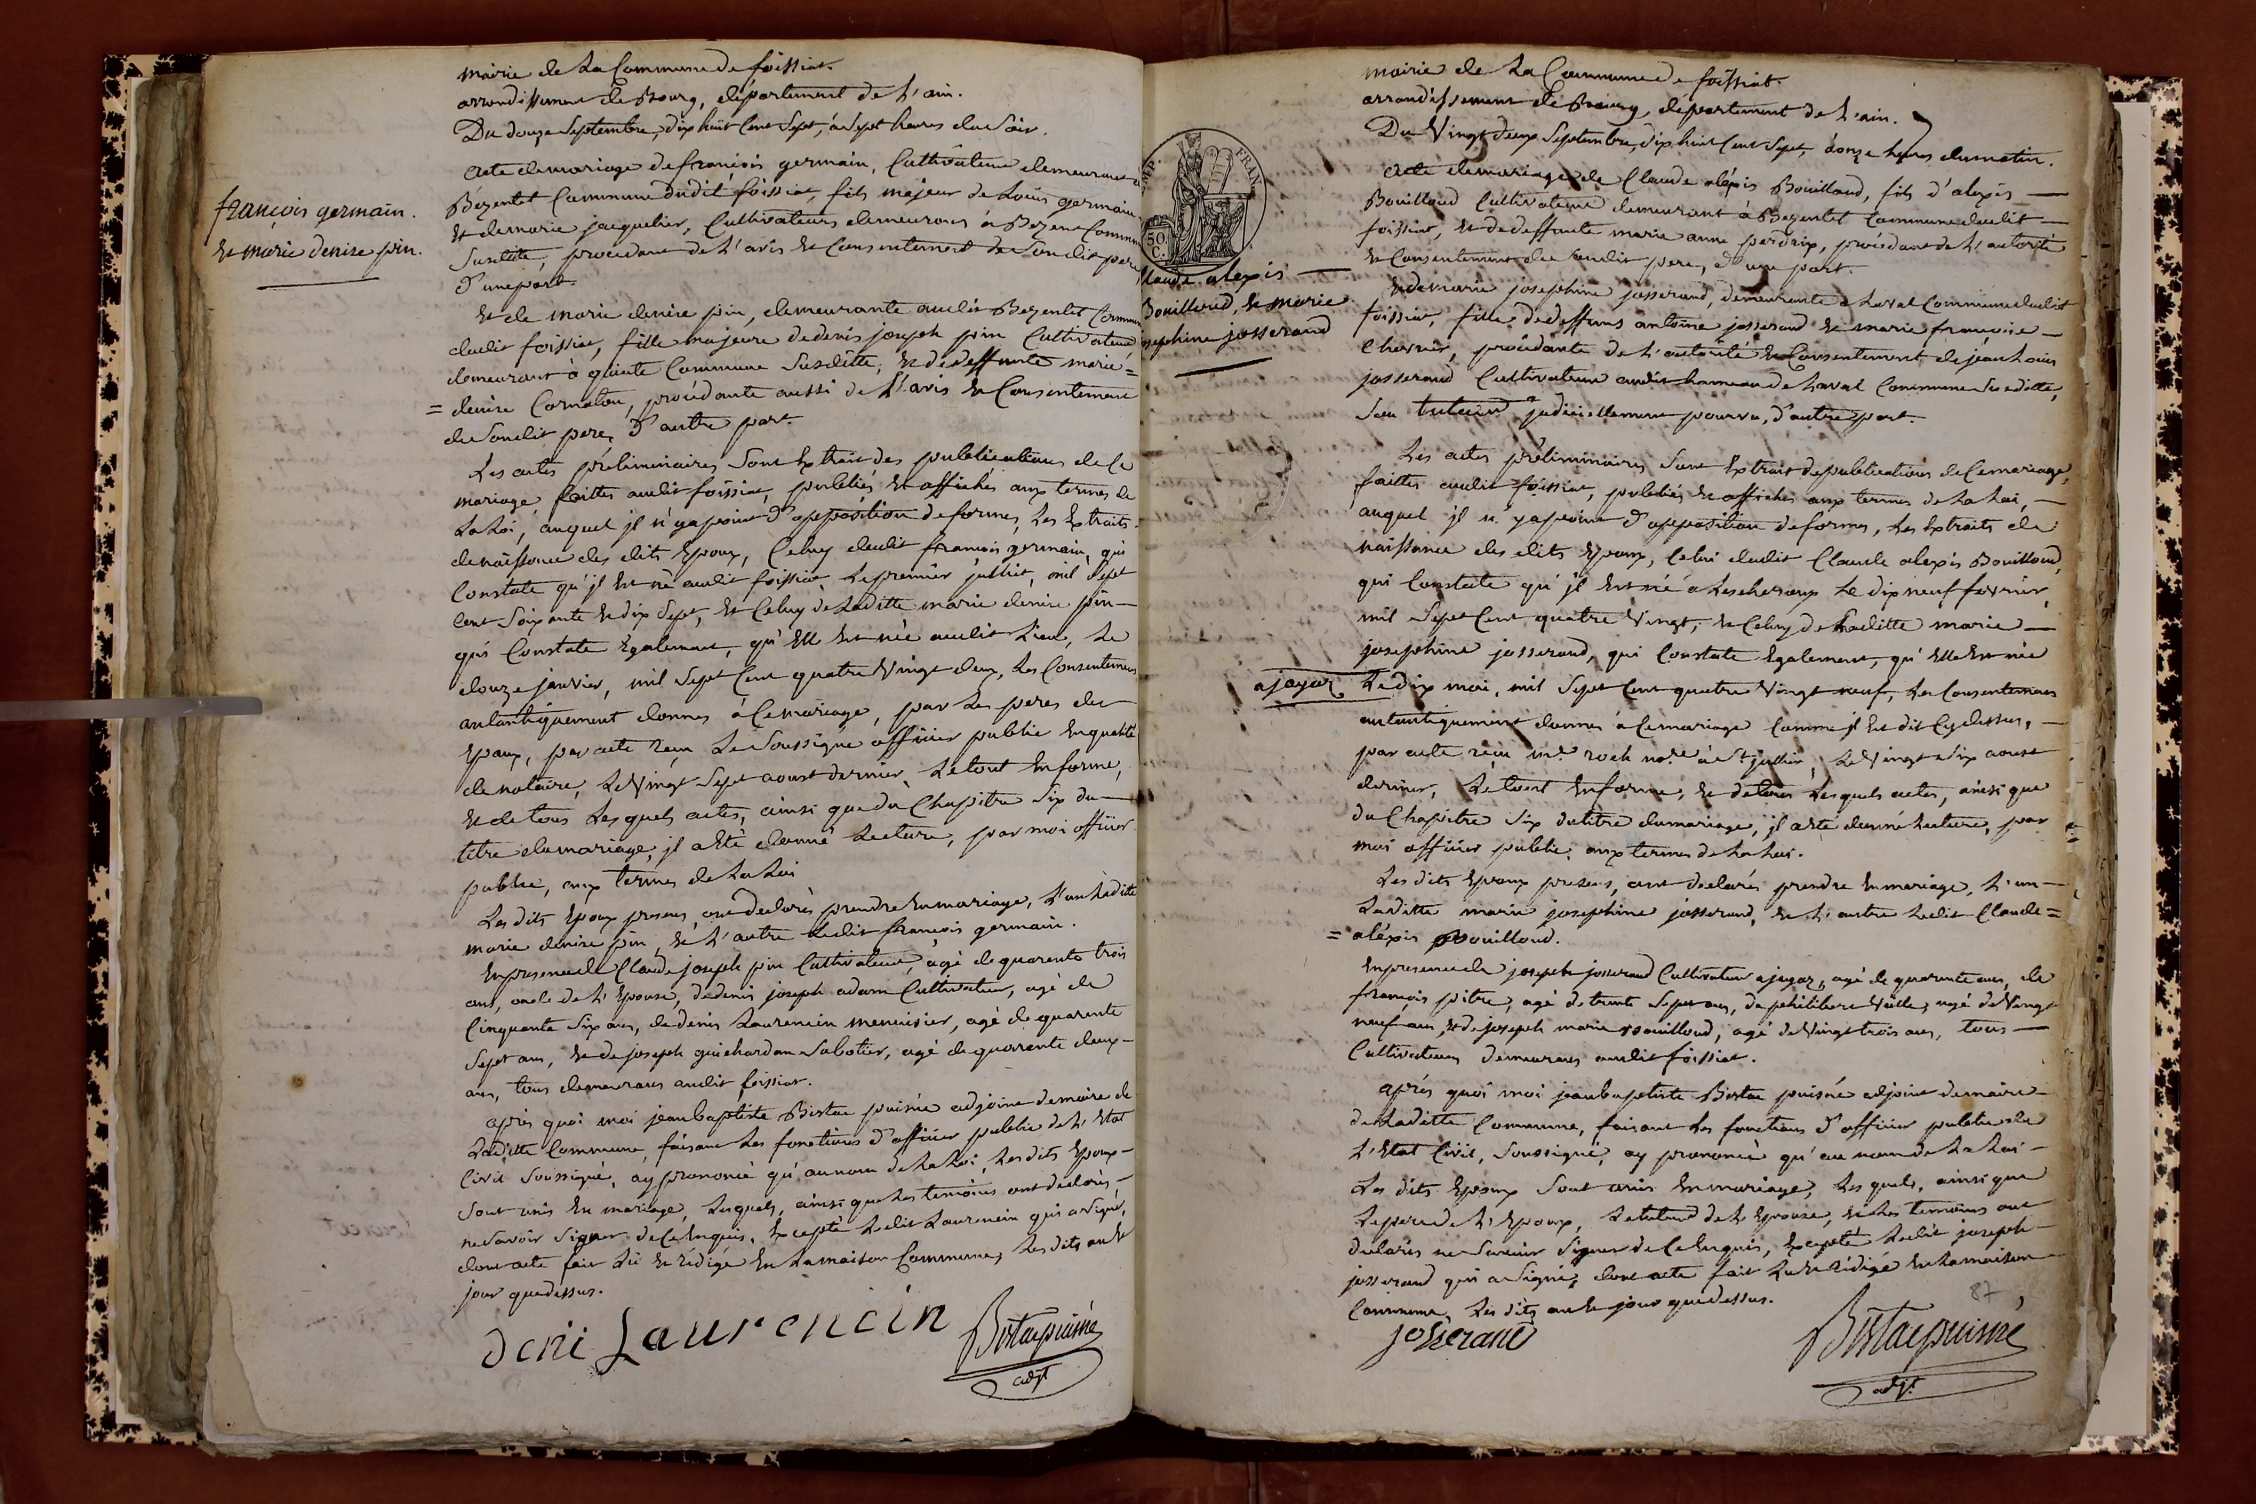 mairie de La Commune de foissiat.
arrondissement de Bourg, département de L'ain.
Du douze Septembre, dix huit Cent Sept, à Sept heures du Soir.
acte de mariage de françois germain, Cultivateur demeurant à
Bézentet Commune dudit foissiat, fils majeur de Louis germain
Et de marie jacquelin, Cultivateurs demeurans à Bezent Commune
Susditte, procedant de L'avis Et Consentement de Son dit pere
d'une part.
françois germain.
Et marie denise pin.
Et de marie denise pin, demeurante audit Bezentet Commune
dudit foissiat, fille majeure de denis joseph pin Cultivateur
demeurant à Commune Susditte, Et de deffunte marie =
= denise Cornaton, procédante aussi de L'avis Et Consentement
de Son dit pere, d'autre part.
Les actes préliminaires Sont Extrait des publications de Ce
mariage faittes audit foissiat, publiés Et affichés aux termes de
La Loi, auquel jl n'ya point d'opposition de formés, Les Extraits
de naissance des dits Epoux, Celuy dudit françois germain, qui
Constate qu'jl Est né audit foissiat Le premier juillet, mil Sept
Cent Soixante Et dix Sept, Et Celuy de Laditte marie denise pin —
qui Constate Egalement, qu'Elle Est née audit Lieu, Le
douze janvier, mil Sept Cent quatre Vingt deux, Les Consentemens
autantiquement donnés à Ce mariage, par Les peres des
Epoux, par acte reçu Le Soussigné officier public En qualité
de notaire, Le Vingt Sept aoust dernier, Le tout En forme,
Et de tous Lesquels actes, ainsi que du Chapitre Six du —
titre du mariage, jl a Eté donné Lecture, par moi officier
public, aux termes de La Loi
Les dits Epoux presens, ont declarés prendre En mariage, L'un Laditte
marie denise pin, Et L'autre Ledit françois germain.
En presence de Claude joseph pin Cultivateur, agé de quarente trois
ans, oncle de L'Epouse, de denis joseph adam Cultivateur, agé de
Cinquante Six ans, de denis Laurencin menuisier, agé de quarente
Sept ans, Et de joseph guichardan Sabotier, agé de quarente deux —
ans, tous demeurans audit foissiat.
après quoi moi jean baptiste Bistac puisné adjoint de maire de
Laditte Commune, faisant Les fonctions d'officier public de L'Etat
Civil Soussigné, ay prononcé qu'au nom de La Loi, Les dits Epoux —
Sont unis En mariage, Lesquels, ainsi que Les temoins ont declarés —
ne Savoir Signer de Ce Enquis, Excepté Ledit Laurencin qui a Signé,
dont acte fait Lu Et rédigé En La maison Commune, Les dits an Et
jour que dessus.
Deni Laurencin
Bistac puisné
adjt
mairie de La Commune de foissiat.
arrondissement de Bourg, département de L'ain.
Du Vingt deux Septembre, dix huit Cent Sept, à onze heures du matin.
IMP. FRAN
50. C.
Claude alexis —
Bouilloud, Et marie
josephine josserand
acte de mariage de Claude aléxis Bouilloud, fils d'alexis —
Bouilloud Cultivateur demeurant à Bezentet Commune dudit —
foissiat, Et de deffunte marie anne perdrix, procédant de L'autorité
Et Consentement de Sondit pere, d'une part.
Et de marie josephine josserand, demeurante à Laval Commune dudit
foissiat, fille de deffuns antoine josserand Et marie françoise —
Charnir, procédante de L'autorité Et Consentement de jean Louis
josserand Cultivateur audit hameau de Laval Commune Susditte,
Son tuteur judiciellement pourvu, d'autre part.
Les actes préliminaires Sont Extrait de publications de Ce mariage,
faittes audit foissiat, publiés Et affichés aux termes de La Loi, —
auquel jl n'ya point d'opposition de formés, Les Extraits de
naissance des dits Epoux, Celui dudit Claude aléxis Bouilloud,
qui Constate qu'jl Est né à Lescheroux Le dix neuf fevrier,
mil Sept Cent quatre Vingt, Et Celuy de Laditte marie —
josephine josserand, qui Constate Egalement, qu'Elle Est née
à jayaz Le dix mai, mil Sept Cent quatre Vingt neuf, Les Consentemens
autantiquement donnés à Ce mariage Comme jl Est dit Cydessus, —
par acte reçu me. roch nore. à St. jullien, Le Vingt Six aoust
dernier, Le tout En forme, Et de tous Lesquels actes, ainsi que
du Chapitre Six du titre du mariage, jl a Eté donné Lecture, par
moi officier public, aux termes de La Loi.
Les dits Epoux presens, ont declarés prendre En mariage, L'un —
Laditte marie josephine josserand, Et L'autre Ledit Claude =
= aléxis Bouilloud.
En presence de joseph josserand Cultivateur à jayaz, agé de quarente ans, de
françois pitre, agé de trente Sept ans, de philibert Vuille, agé de Vingt
neuf ans, Et de joseph marie Bouilloud, agé de Vingt trois ans, tous —
Cultivateurs demeurans audit foissiat.
après quoi moi jean baptiste Bistac puisné adjoint de maire —
de Laditte Commune, faisant Les fonctions d'officier public de
L'Etat Civil, Soussigné, ay prononcé qu'au nom de La Loi —
Les dits Epoux Sont unis En mariage, Lesquels, ainsi que
Le pere de L'Epoux, Le tuteur de L'Epouse, Et Les temoins ont
declarés ne Savoir Signer de Ce Enquis, Excepté Ledit joseph —
josserand qui a Signé, dont acte fait Lu Et rédigé En La maison —
Commune, Les dits an Et jour que dessus.
87
josserand
Bistac puisné
adjt.